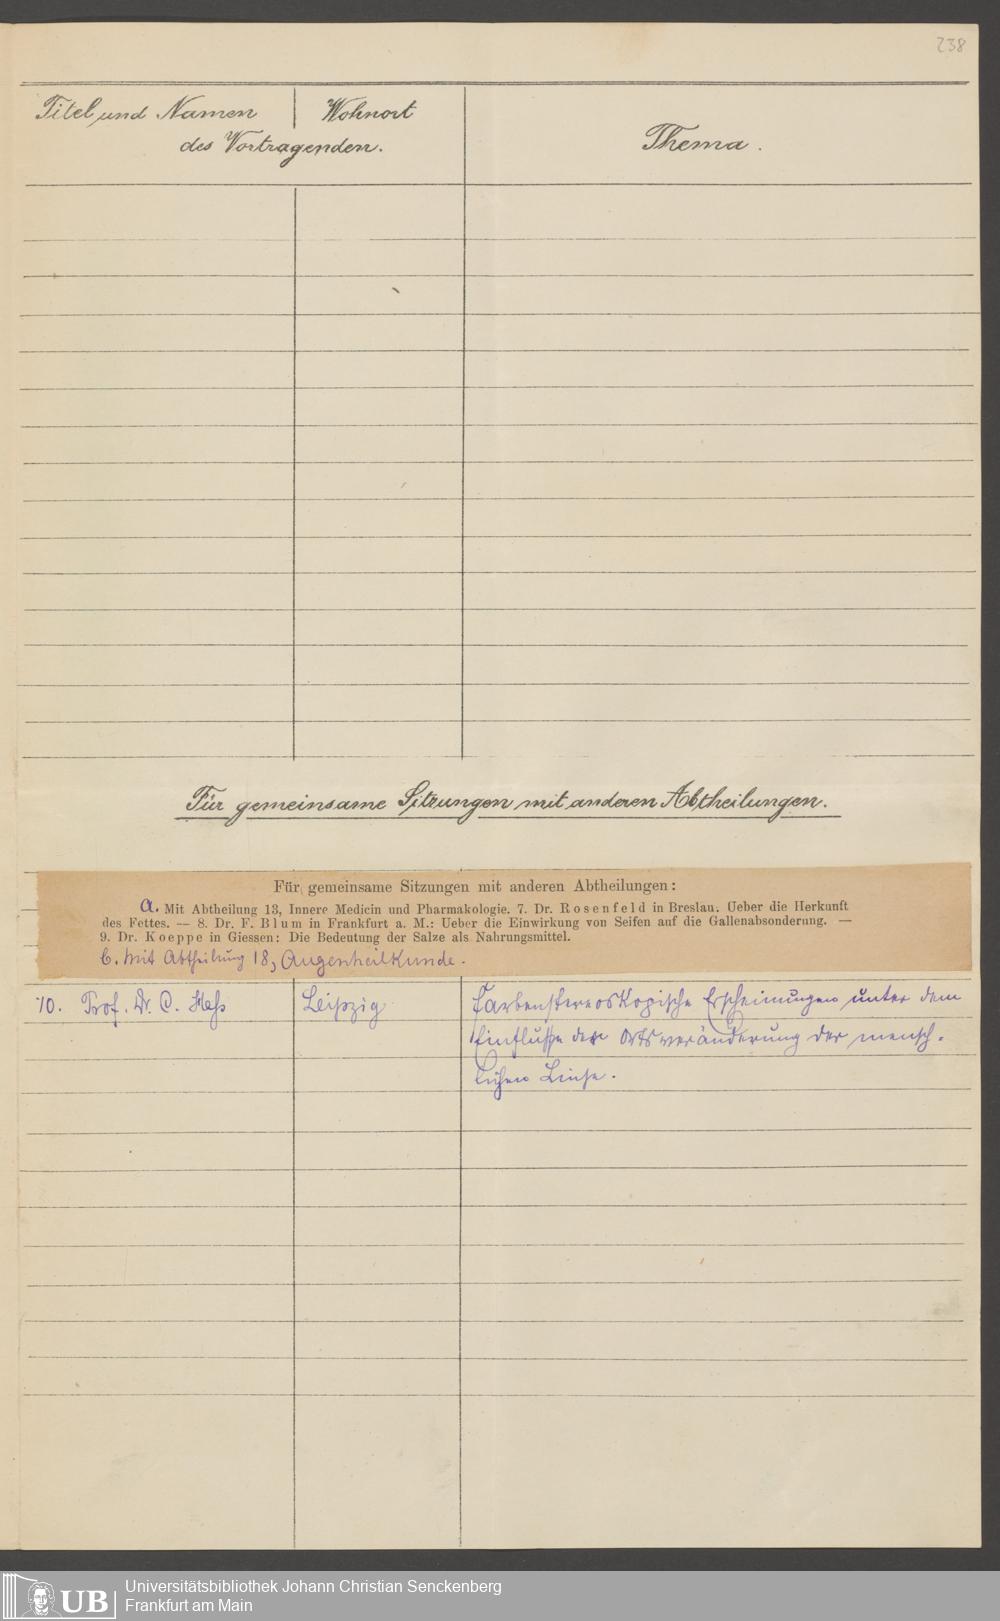 238
Titel und Namen Wohnort
des Vortragenden.
Thema.
Für gemeinsame Sitzungen mit anderen Abtheilungen.
Für gemeinsame Sitzungen mit anderen Abtheilungen:
a. Mit Abtheilung 13, Innere Medicin und Pharmakologie. 7. Dr. Rosenfeld in Breslau. Ueber die Herkunft
des Fettes. — 8. Dr. F. Blum in Frankfurt a. M.: Ueber die Einwirkung von Seifen auf die Gallenabsonderung. —
9. Dr. Koeppe in Giessen: Die Bedeutung der Salze als Nahrungsmittel.
b. Mit Abtheilung 18, Augenheilkunde.
10. Prof. Dr. C. Heß Leipzig Farbenstereoskopische Erscheinungen unter dem
Einflusse der Ortsveränderung der mensch-
lichen Linse.
UB Universitätsbibliothek Johann Christian Senckenberg
Frankfurt am Main